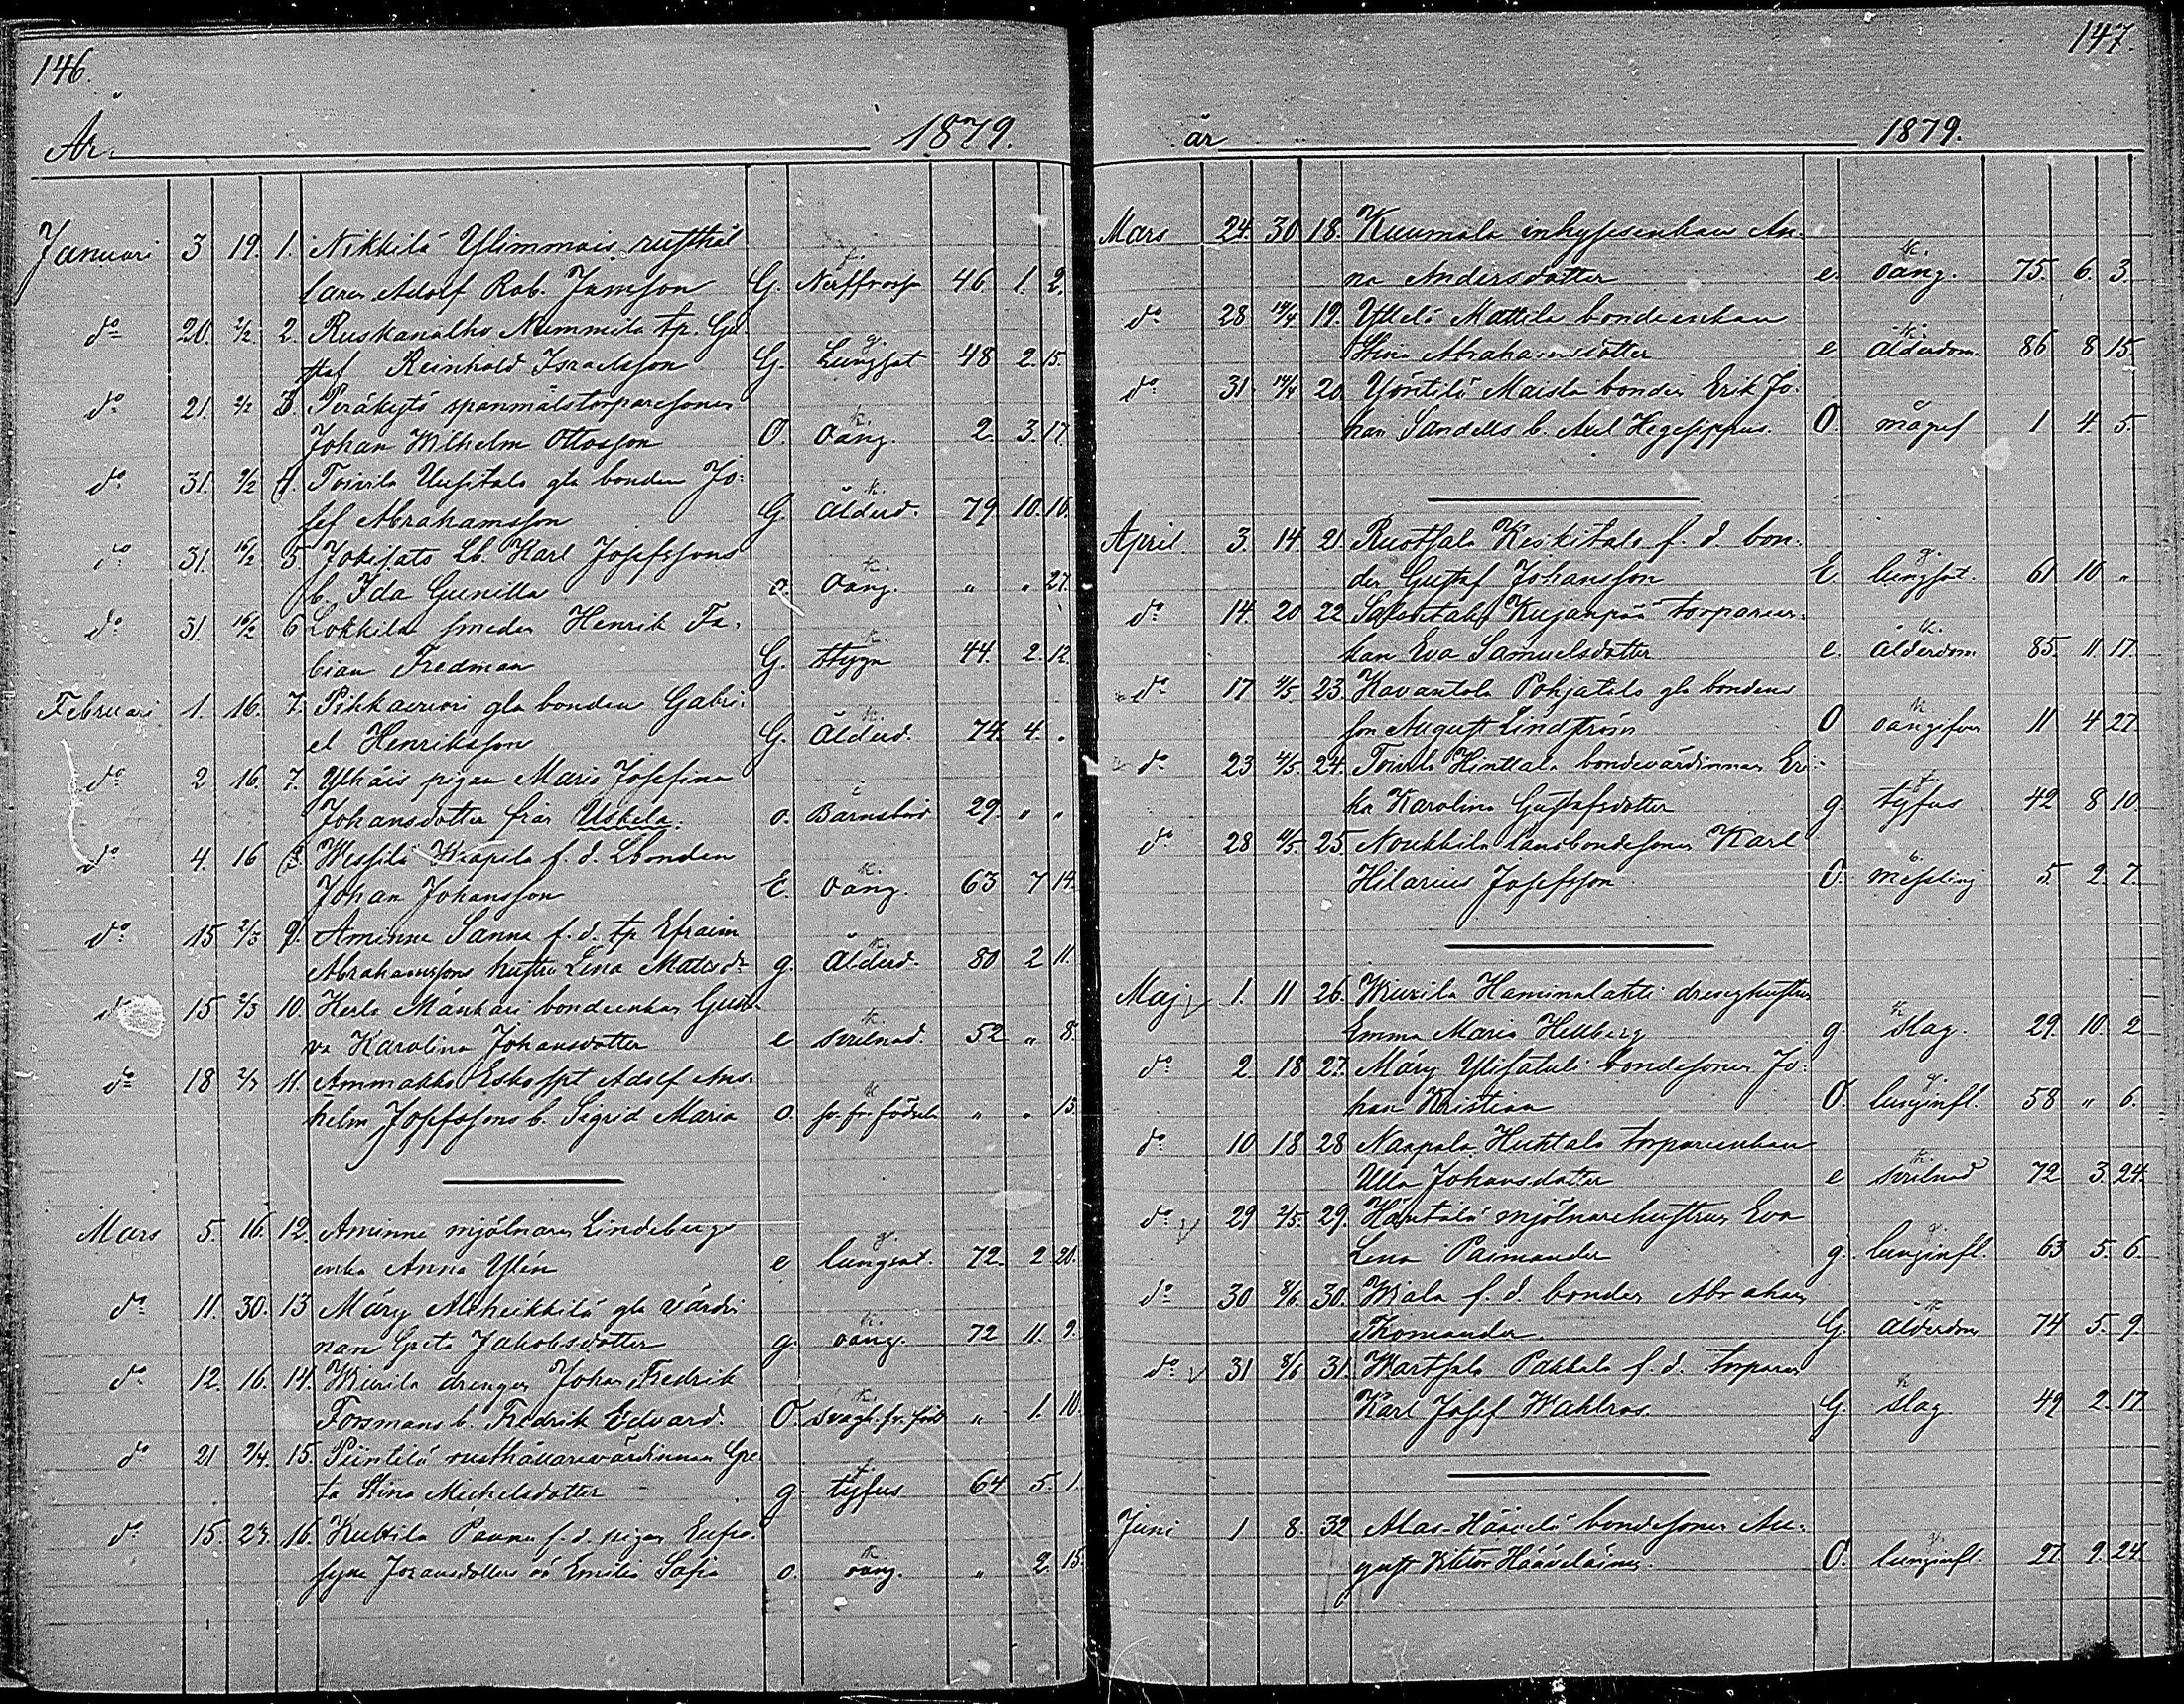 146.
År 1879.
Januari 3 19. 1. Nikkilä Ylimmais rusthål
laren Adolf Rob. Jamsson G. 46. 1. 2.
do 20. 2/2. 2. Ruskanalho Nummila tp. Gu
staf Reinhold Israelsson G. Lungsot 48 2. 15.
do 21. 2/2 3. Peräkytö spanmålstorparesonen
Johan Wilhelm Ottosson O. oäng. 2. 3. 17.
do 31. 9/2 4. Toivila Uusitalo gla bonden Jo-
sef Abrahamsson G. Ålderd. 79 10. 16.
do 31. 16/2 5. Jokisato Lb. Karl Josefssons
b. Ida Gunilla o. oäng. " " 27.
do 31. 16/2 6 Lokkila smeden Henrik Fa-
bian Fredman G. Stygn 44. 2. 12.
Februari 1. 16. 7. Pihkavuori gla bonden Gabri-
el Henriksson G. Ålderd. 74. 4. "
do 2 16. 7. Ylhäis pigan Maria Josefina
Johansdotter från Uskela. o. Barnsbörd 29. " "
do 4. 16 8. Wessilä Wiapila f. d. Lbonden
Johan Johansson E. oäng. 63 7 14.
do 15 2/3 9. Aminne Sanna f. d. tp Efraim
Abrahamssons hustru Lena Matsdr g. Ålderd. 80 2 11.
do 15 2/3 10. Mänkäri bondeenkan Gusta
va Karolina Johansdotter e svulnad. 52 " 8.
do 18 2/3 11. Ammakko Adolf Ans-
helm Josefssons b. Sigrid Maria o. sv. fr. födseln " " 13.
Mars 5. 16. 12. Aminne mjölnaren Lindebergs
enka Anna Ylén e lungsot. 72. 2 20.
do 11. 30. 13 Märy Alheikkilä gla värdi-
nnan Greta Jakobsdotter g. oäng. 72 11. 9.
do 12. 16. 14. Wiurila drengen Johan Fredrik
Forsmans b. Fredrik Edvard. O. svagh. fr. föd " 1. 10.
do 21 2/4. 15. Piintilä rusthållarevärdinnan Gre-
ta Stina Michelsdotter g. tyfus 64 5. 1.
do 15. 23. 16. Kuttila Paunu f. d. pigan Eufro-
syne Johansdotters oä Emilia Sofia o. oäng. " 2. 15.
147.
år 1879.
Mars 24. 30 18. Kuumola inhysesenkan An-
na Andersdotter e. oäng. 75. 6. 3.
do 28 14/4 19. Yttelä Mattila bondeenkan
Stina Abrahamsdotter e ålderdom. 86 8 15.
do 31. 14/4 20. Yöntilä Maisla bonden Erik Jo-
han Sandells b. Axel Hegesippus. O. mågref 1 4. 5.
April. 3. 14 21. Ruotsala Keskitalo f. d. bon-
den Gustaf Johansson E lungsot. 61 10 "
do 14. 20 22. Kujanpää torpareen-
kan Eva Samuelsdotter e. ålderdom 85. 11 17.
do 17 4/5 23. Kavantola Pohjatalo gla bondens
son August Lindström O 11 4 27
do 23 4/5. 24. Toivila Hinttala bondevärdinnan Eri-
ka Karolina Gustafsdotter g tyfus 42 8 10
do 28 4/5 25. Noukkila landbondesonen Karl
Hilarius Josefsson O. messling 5. 2. 7.
Maj 1. 11 26. Wiurila Haminalahti drenghustrun
Emma Maria Hellberg g. slag. 29. 10. 2
do 2 18 27. Märy Ylisatuli bondesonen Jo-
han Kristian O. lunginfl. 58 " 6.
do 10 18 28 Naapala Huhtala torpareenkan
Ulla Johansdotter e svulnad 72 3 24.
do 29 2/5 29. Häntälä mjölnarehustrun Eva
Lena Paimander g. lunginfl. 63 5. 6.
do 30 8/6 30. Wiala f. d. bonden Abraham
Thomander. G. ålderdom 74 5. 9.
do 31 8/6 31. Wartsala Pakkala f. d. torparen
Karl Josef Wahlros. G. slag 49 2. 17
Juni 1 8. 32 Alas-Häävelä bondesonen Au-
gust Viktor Hääveläinen. O. lunginfl. 27. 9. 24